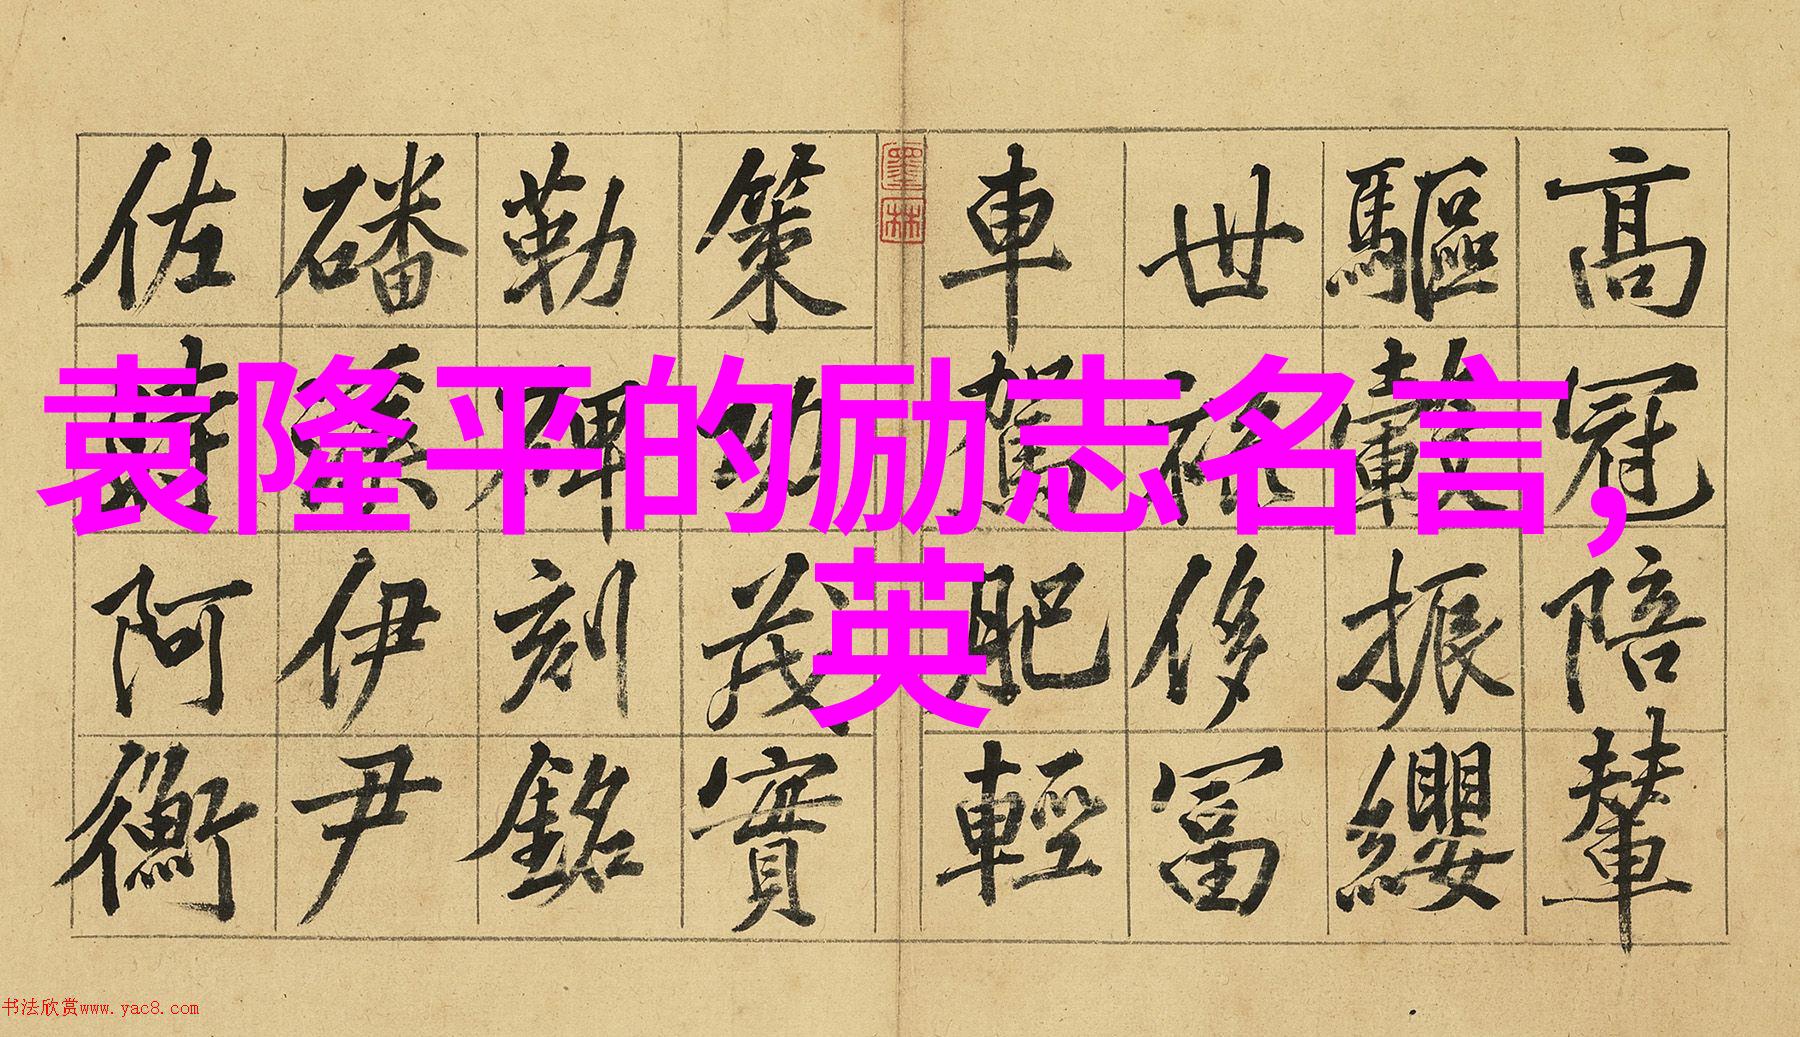 袁隆平的励志名言，
英
高冠陪輦
驅轂振纓
世祿侈富
車駕肥輕
墨林
策功茂實
勒碑刻銘
磻溪伊尹
佐時阿衡
书法欣赏www.yac8.com